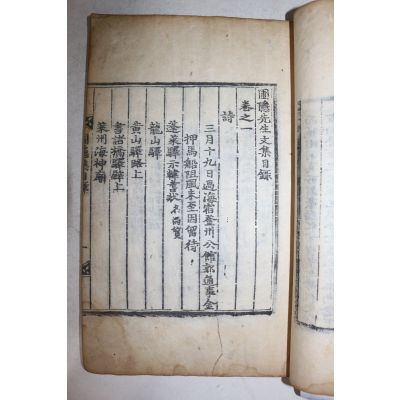 圃隱先生文集目錄
卷之一
詩
三月十九日過海宿登州公館郭通事金
押馬船阻風未至因留待
蓬萊驛示韓書狀名尙質
龍山驛
黃山驛路上
書諸橋驛壁上
萊州海神廟